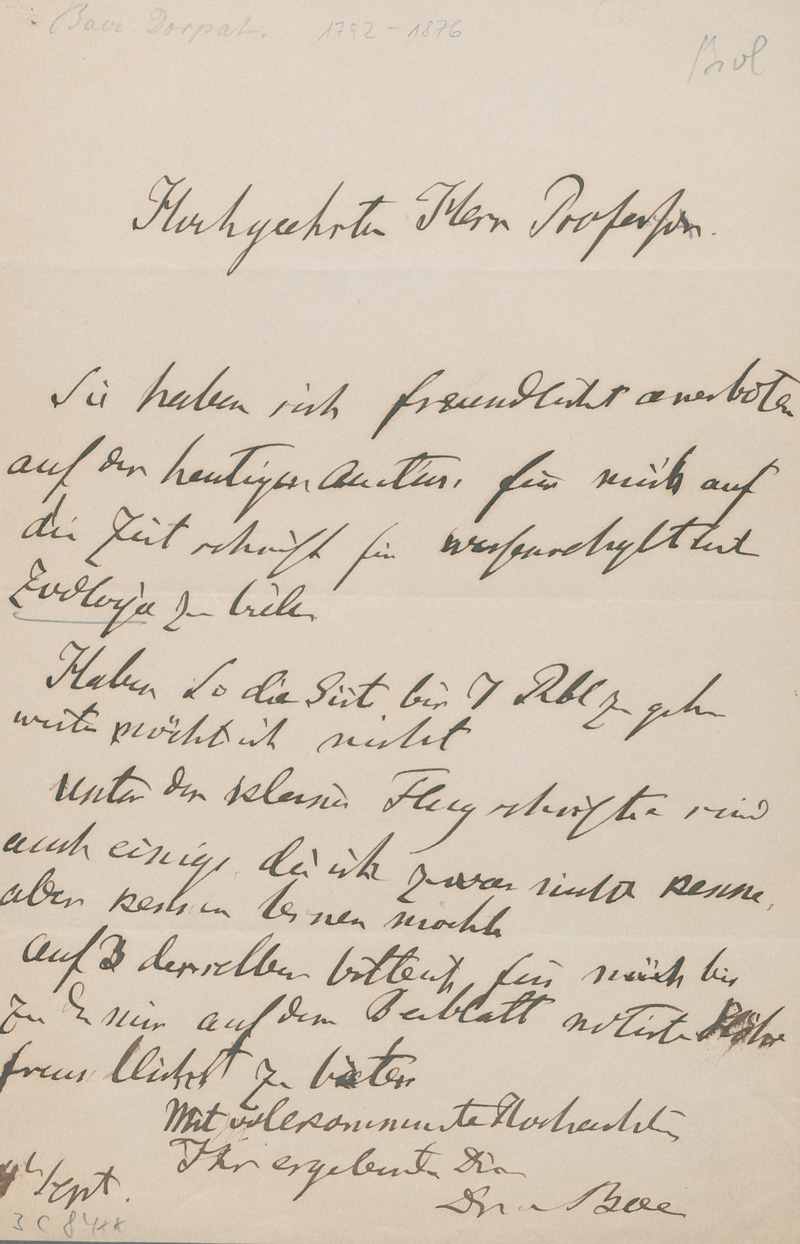 Baer Dorpat. 1792 – 1876
Hochgeehrter Herr Professor.
Sie haben sich freundlichst anerboten
auf der heutigen Auction für mich auf
die Zeitschrift für wissenschaftliche
Zoologie zu bieten
Haben Sie die Güte bis 7 Rbl zu gehen
weiter möchte ich nicht
Unter den kleinen Flugschriften sind
auch einige die ich zwar nicht kenne,
aber kennen lernen möchte
Auf 3 derselben bitte ich für mich bis
zu der mir auf dem Beiblatt notirten Höhe
freundlichst zu bieten
Mit vollkommenster Hochachtung
Ihr ergebenster
Dr v Baer
Sept.